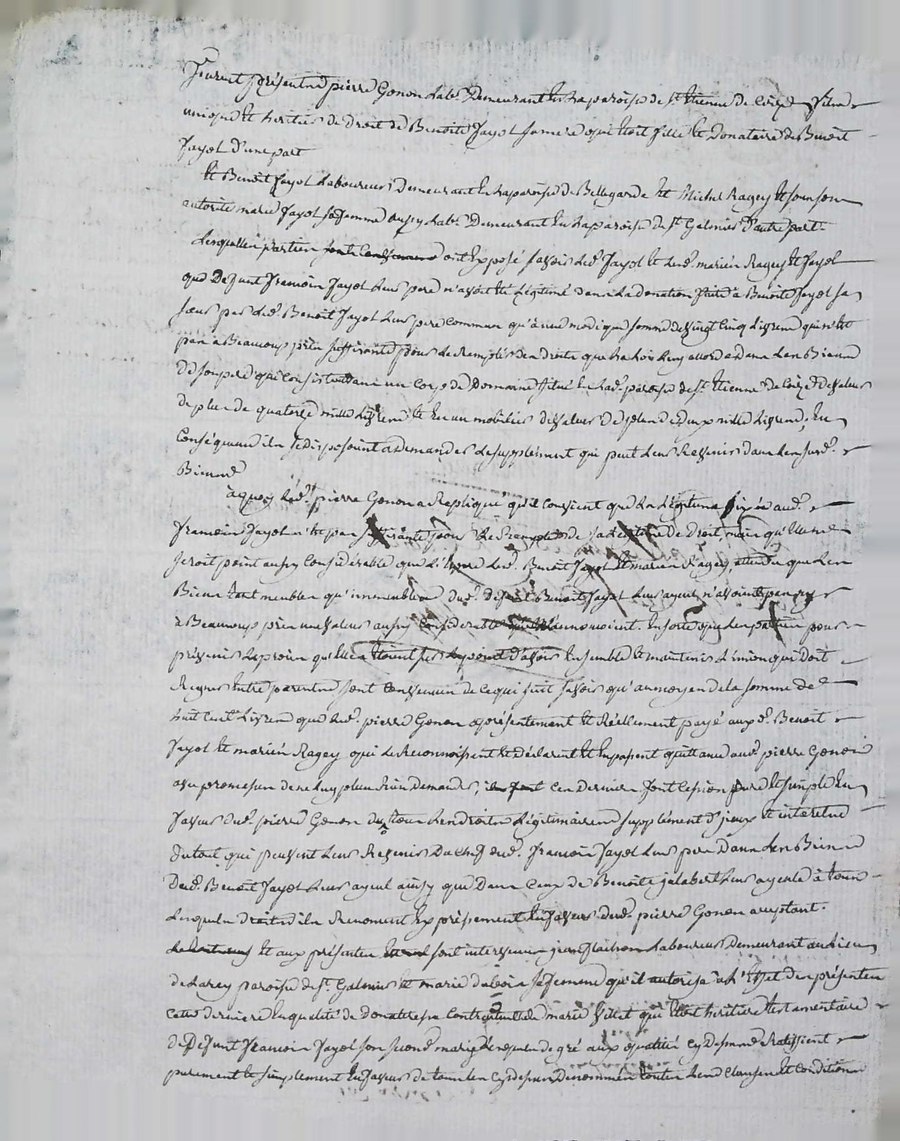 Furent présents pierre Gonon Lab.r Demeurant En La paroisse de S.t Etienne de Coize fils
unique Et heritier de droit de Benoite Jayol Sa mere qui Etoit fille Et Donataire de Benoit
Jayol d'une part
Et Benoit Jayol Laboureur Demeurant En La paroisse de Bellegarde Et Michel Ragey Et sous son
autorité marie Jayol Sa femme aussy Lab.r Demeurant En La paroisse de S.t Galmier d'autre part.
Lesquelles parties ont Exposé savoir Led. Jayol Et Led. mariés Ragey Et Jayol
que Defunt François Jayol Leur pere n'avoit Eté Légitimé dans La donation faite à Benoite Jayol sa
sœur par Led. Benoit Jayol Leur pere commun qu'à une modique somme de vingt Cinq Livres qui n'est
pas à Beaucoup près suffisante pour Le remplir des droits que La Loix Luy accorde dans Les Biens
de son pere qui consistent dans un Corps de Domaine situé En Lad. paroisse de S.t Etienne de Coize de valeur
de plus de quatorze mille Livres Et En un mobilier de valeur de plus de deux mille Livres, En
Conséquence ils se disposoient à demander Le supplément qui peut Leur Revenir dans Les susd.
Biens
à quoy Led. pierre Gonon a Repliqué qu'il Convient que La Légitime fixée aud.
François Jayol n'est pas suffisante pour Le Remplir de sa de Droit, mais qu'Elle ne
seroit point aussy Considerable que Led. Benoit Jayol Et mariés Ragey, attendu que Les
Biens tant meubles qu'immeubles dud. défunt Benoit Jayol Leur ayeul n'avoient pas
à Beaucoup près une valeur aussy Considerable. En sorte que Les parties pour
prévenir Le procès qu'elles Etoient sur Le point d'avoir Ensemble Et maintenir L'union qui Doit
Regner Entre parents sont Convenus de ce qui suit savoir qu'au moyen de la somme de
huit Cent Livres que Led. pierre Gonon a présentement Et Réellement payé auxd. Benoit
Jayol Et mariés Ragey qui Le Reconnoissent Et déclarent Et En passent quittance aud. pierre Gonon
avec promesse de ne Luy plus Rien Demander, Ces Derniers font Cession pure Et simple En
faveur dud. pierre Gonon de tous Les droits Légitimaires supplément d'iceux Et interets
du tout qui peuvent Leur Revenir Du Chef dud. François Jayol Leur pere Dans Les Biens
Dud. Benoit Jayol Leur ayeul ainsy que Dans Ceux de Benoite jalabert Leur ayeule à tous
Lesquels droits ils Renoncent Expressément En faveur dud. pierre Gonon acceptant.
Et aux présentes sont intervenus jean Laboureur Demeurant au Lieu
de Larey paroisse de S.t Galmier Et marie dubois Sa femme qu'il autorise à L'Effet des présentes
Cette derniere En qualité de donatresse Contractuelle de marie qui Etoit heritiere testamentaire
de Défunt François Jayol son second mari Lesquels de gré aux qualités Cy Dessus Ratifient
purement Et simplement En faveur de tous Les Cy dessus Denommés toutes Les Clauses Et Conditions